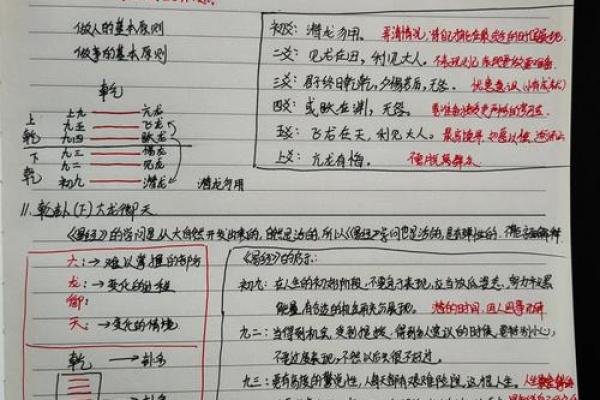 做人的基本原则
做事的基本原则
乾
上九 亢龙
九五 飞龙
九四 跃龙
九三 惕龙
九二 见龙
初九 潜龙 潜龙勿用
上乾
下乾
初爻: 潜龙勿用。
二爻: 见龙在田, 利见大人。
三爻: 君子终日乾乾, 夕惕若厉, 无咎。 忧患意识
四爻: 或跃在渊, 无咎。
五爻: 飞龙在天, 利见大人。
上爻: 亢龙有悔。
11. 乾卦(下)六龙御天
《易经》的学问是从大自然开发出来的, 自然是活的, 所以《易经》学问也是活的, 是有弹性的.
六: → 难以掌握的部分
龙: → 变化的过程
御:
天: → 变化的情境
乾 → 卦名
《易经》的启示:
初九: 在人生的初始阶段, 不要急于表现, 应当放低姿态, 努力积累
能量, 有合适的机会再去表现。 潜的时间, 因人因事而异
九二: 当得到机会, 受到提拔, 得到别人赏识的时候, 要特别小心,
不过度表现, 不然以后很不好过。
九三: 要有高度的警觉性, 人每天都有艰难险阻, 这很人生。